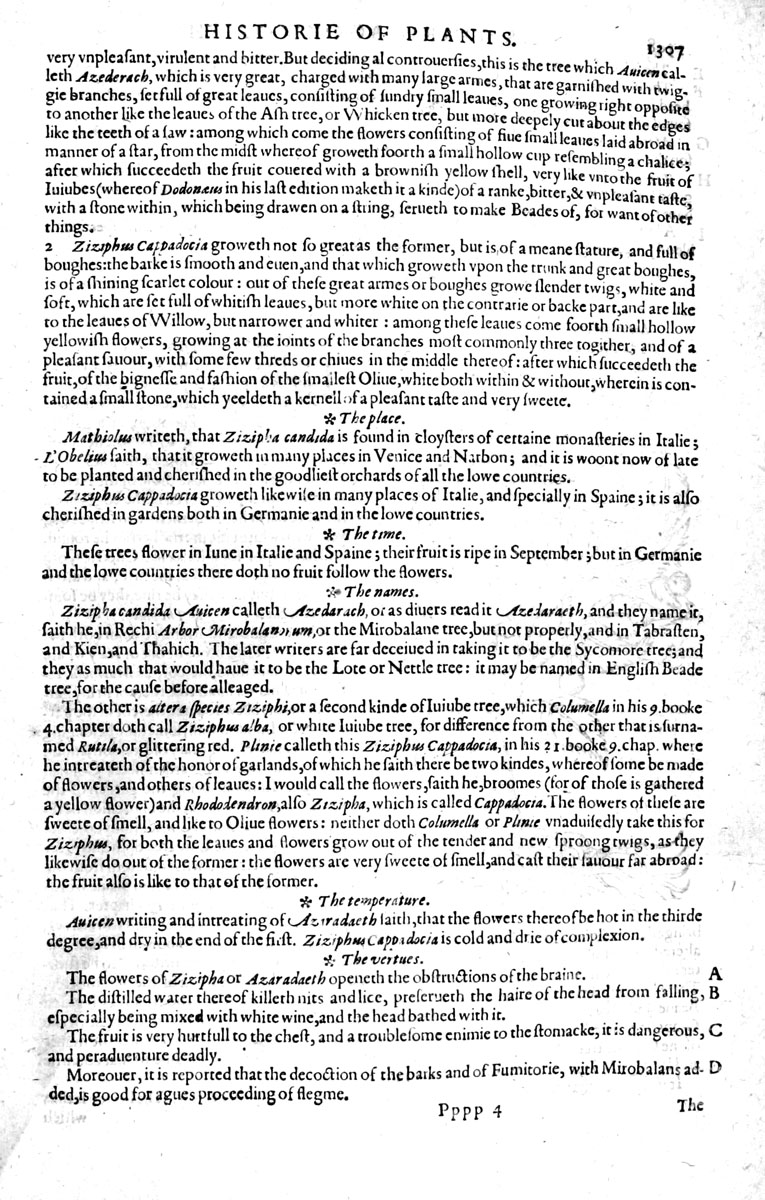 HISTORIE OF PLANTS.
1307
very vnpleaſant, virulent and bitter. But deciding al controuerſies, this is the tree which Auicen cal-
leth Azederach, which is very great, charged with many large armes, that are garniſhed with twig-
gie branches, ſet full of great leaues, conſiſting of ſundry ſmall leaues, one growing right oppoſite
to another like the leaues of the Aſh tree, or Whicken tree, but more deepely cut about the edges
like the teeth of a ſaw: among which come the flowers conſiſting of fiue ſmall leaues laid abroad in
manner of a ſtar, from the midſt whereof groweth foorth a ſmall hollow cup reſembling a chalice;
after which ſucceedeth the fruit couered with a browniſh yellow ſhell, very like vnto the fruit of
Iuiubes (whereof Dodonæus in his laſt edition maketh it a kinde) of a ranke, bitter, & vnpleaſant taſte,
with a ſtone within, which being drawen on a ſtring, ſerueth to make Beades of, for want of other
things.
2 Ziziphus Cappadocia groweth not ſo great as the former, but is of a meane ſtature, and full of
boughes: the barke is ſmooth and euen, and that which groweth vpon the trunk and great boughes,
is of a ſhining ſcarlet colour: out of theſe great armes or boughes growe ſlender twigs, white and
ſoft, which are ſet full of whitiſh leaues, but more white on the contrarie or backe part, and are like
to the leaues of Willow, but narrower and whiter: among theſe leaues come foorth ſmall hollow
yellowiſh flowers, growing at the ioints of the branches moſt commonly three togither, and of a
pleaſant ſauour, with ſome few threds or chiues in the middle thereof: after which ſucceedeth the
fruit, of the bigneſſe and faſhion of the ſmalleſt Oliue, white both within & without, wherein is con-
tained a ſmall ſtone, which yeeldeth a kernell of a pleaſant taſte and very ſweete.
* The place.
Mathiolus writeth, that Zizipha candida is found in cloyſters of certaine monaſteries in Italie;
L'Obelius ſaith, that it groweth in many places in Venice and Narbon; and it is woont now of late
to be planted and cheriſhed in the goodlieſt orchards of all the lowe countries.
Ziziphus Cappadocia groweth likewiſe in many places of Italie, and ſpecially in Spaine; it is alſo
cheriſhed in gardens both in Germanie and in the lowe countries.
* The time.
Theſe trees flower in Iune in Italie and Spaine; their fruit is ripe in September; but in Germanie
and the lowe countries there doth no fruit follow the flowers.
* The names.
Zizipha candida Auicen calleth Azedarach, or as diuers read it Azedaraeth, and they name it,
ſaith he, in Rechi Arbor Mirobalanrum, or the Mirobalane tree, but not properly, and in Tabraſten,
and Kien, and Thahich. The later writers are far deceiued in taking it to be the Sycomore tree; and
they as much that would haue it to be the Lote or Nettle tree: it may be named in Engliſh Beade
tree, for the cauſe before alleaged.
The other is altera ſpecies Ziziphi, or a ſecond kinde of Iuiube tree, which Columella in his 9. booke
4. chapter doth call Ziziphus alba, or white Iuiube tree, for difference from the other that is ſurna-
med Rutila, or glittering red. Plinie calleth this Ziziphus Cappadocia, in his 21. booke 9. chap. where
he intreateth of the honor of garlands, of which he ſaith there be two kindes, whereof ſome be made
of flowers, and others of leaues: I would call the flowers, ſaith he, broomes (for of thoſe is gathered
a yellow flower) and Rhododendron, alſo Zizipha, which is called Cappadocia. The flowers of theſe are
ſweete of ſmell, and like to Oliue flowers: neither doth Columella or Plinie vnaduiſedly take this for
Ziziphus, for both the leaues and flowers grow out of the tender and new ſproong twigs, as they
likewiſe do out of the former: the flowers are very ſweete of ſmell, and caſt their ſauour far abroad:
the fruit alſo is like to that of the former.
* The temperature.
Auicen writing and intreating of Azaradaeth ſaith, that the flowers thereof be hot in the thirde
degree, and dry in the end of the firſt. Ziziphus Cappadocia is cold and drie of complexion.
* The vertues.
The flowers of Zizipha or Azaradaeth openeth the obſtructions of the braine. A
The diſtilled water thereof killeth nits and lice, preſerueth the haire of the head from falling, B
eſpecially being mixed with white wine, and the head bathed with it.
The fruit is very hurtfull to the cheſt, and a troubleſome enimie to the ſtomacke, it is dangerous, C
and peraduenture deadly.
Moreouer, it is reported that the decoction of the barks and of Fumitorie, with Mirobalans ad- D
ded, is good for agues proceeding of flegme.
Pppp 4
The